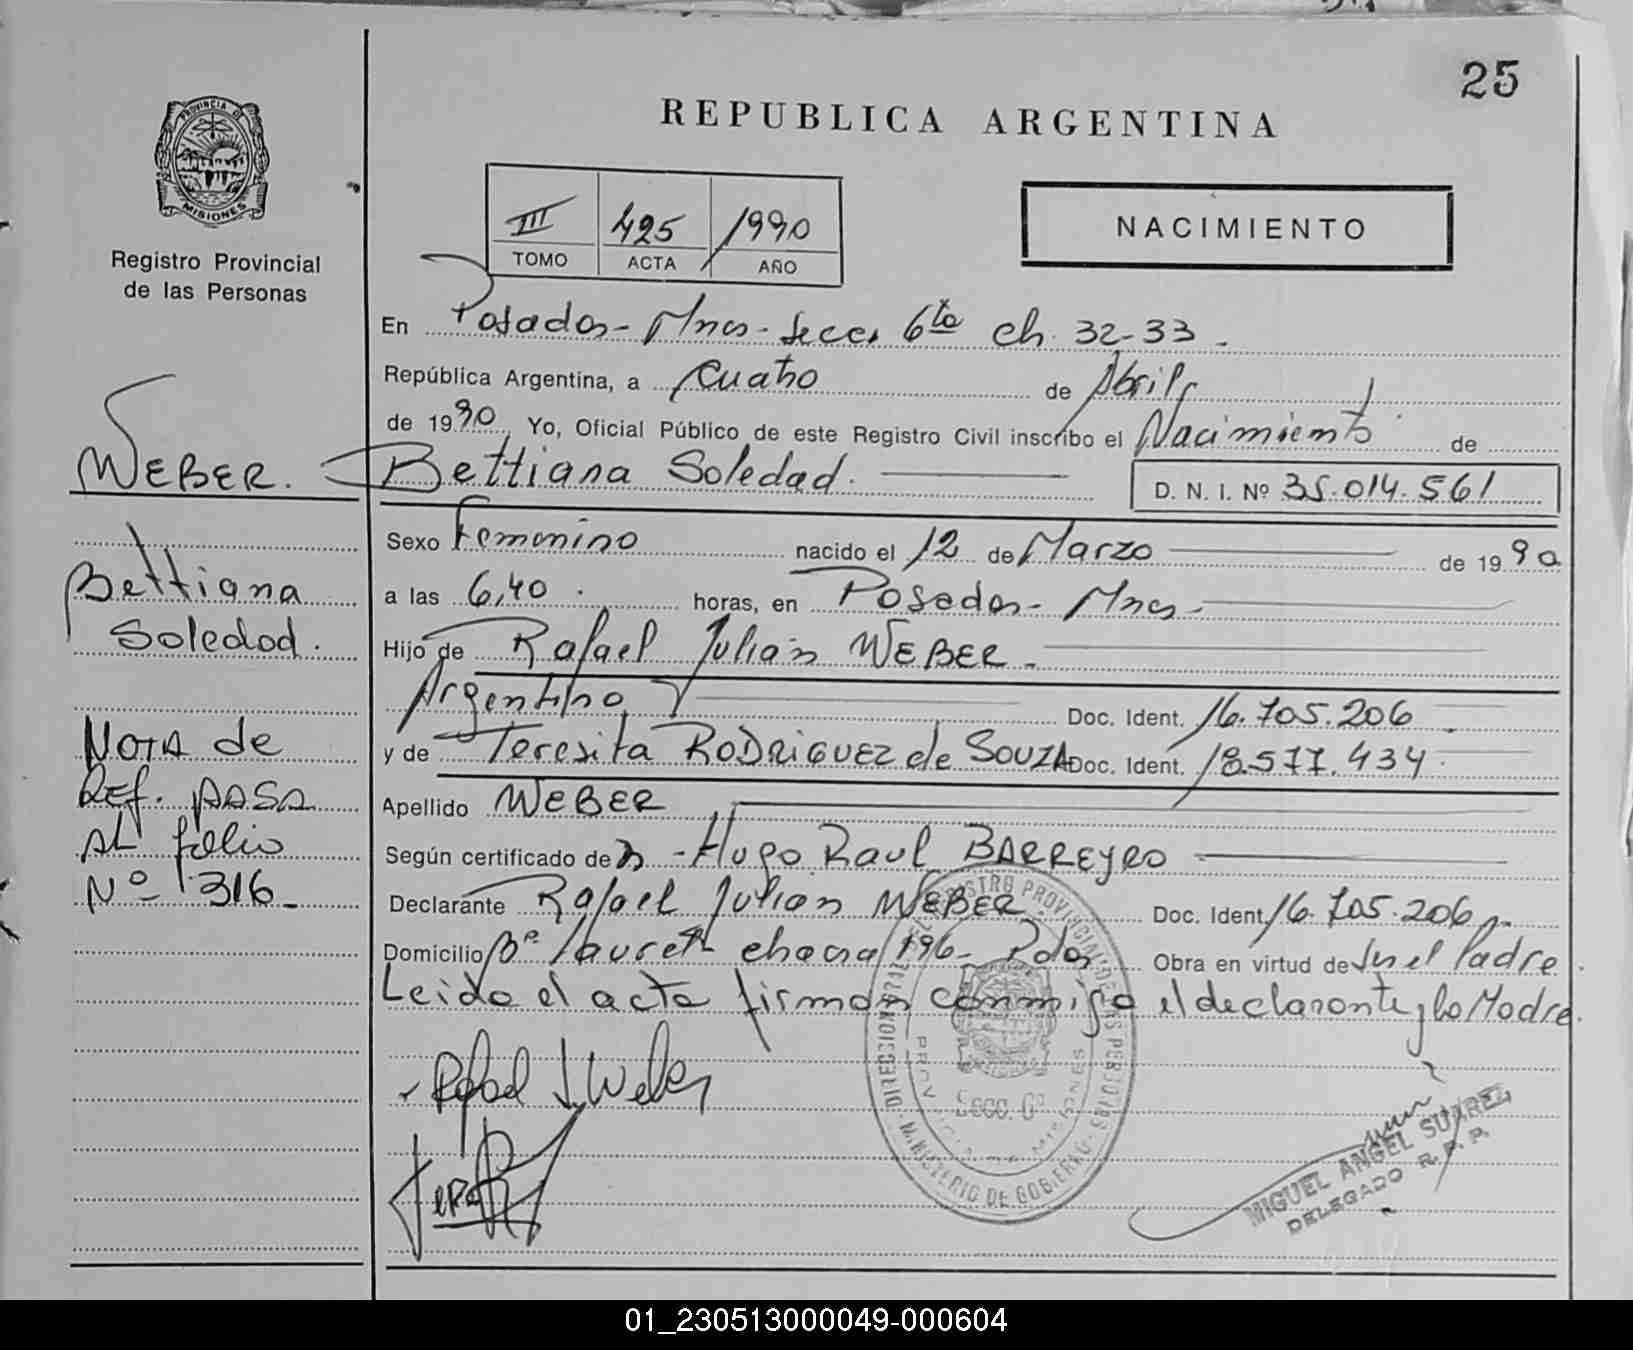 25
REPUBLICA ARGENTINA
PROVINCIA DE
MISIONES
Registro Provincial
de las Personas
III 425 1990
TOMO ACTA AÑO
NACIMIENTO
En Posadas - Mnes - Secc. 6ta ch. 32-33.
República Argentina, a Cuatro de Abril
de 1990 Yo, Oficial Público de este Registro Civil inscribo el Nacimiento de
WEBER.
Bettiana Soledad. D. N. I. Nº 35.014.561
Sexo Femenino nacido el 12 de Marzo de 1990
Bettiana
Soledad.
a las 6,40. horas, en Posadas - Mnes -
Hijo de Rafael Julián WEBER -
Argentino Doc. Ident. 16.705.206
y de Teresita RODRIGUEZ de SOUZA Doc. Ident. 18.577.434
NOTA de
Ref. PASA
AL folio
Nº 1316-
Apellido WEBER
Según certificado de - Hugo Raul BARREYRO
Declarante Rafael Julián WEBER Doc. Ident. 16.705.206
Domicilio Bº chacra 196- Pdas Obra en virtud de Ser el Padre.
Leida el acta firman conmigo el declarante y la Madre.
Rafael J. Weber
Tere
DIRECCION GRAL. DEL REGISTRO PROVINCIAL DE LAS PERSONAS
MINISTERIO DE GOBIERNO
PROVINCIA DE MISIONES
Secc. 6ª
MIGUEL ANGEL SUAREZ
DELEGADO R. P. P.
01_230513000049-000604